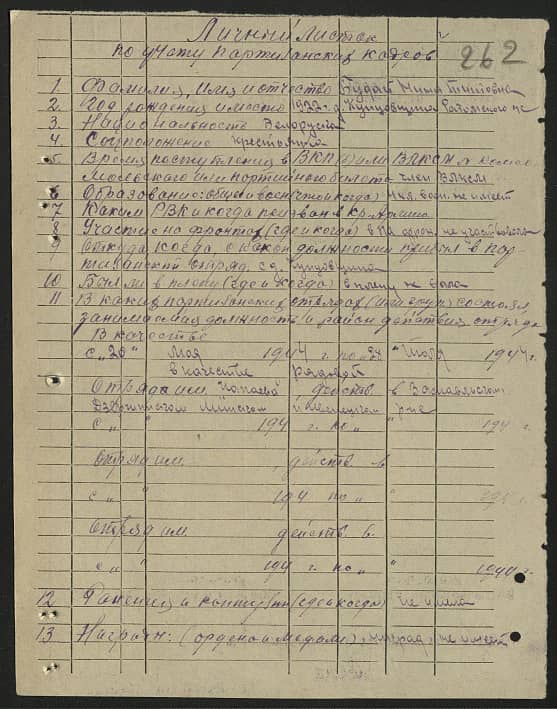 Личный листок
по учёту партизанских кадров
262
1. Фамилия, имя и отчество Будай Нина
2. Год рождения и место 1922 г. д. Купцовщина
3. Национальность Белоруска
4. Соцположение Крестьянка
5 Время поступления в ВКП(б) или ВЛКСМ № комсо
мольского или портийного билета член ВЛКСМ
6 Образование: общее и воен(что и когда) воен. не имеет
7 Каким РВК и когда призван в Кр. Армию
8 Участие на фронтах (где и когда) в На фрон. не участвовала
9 Откуда, когда, с какой должности прибыл в пар
тизанский отряд с д. Купцовщина
10 Был ли в плену (где и когда) в плену не была
11 В каких партизанских отрядах (или груп) состоял,
занимаемая должность и район действия отряда
В качестве
с „20" Мая 1944 г. по „ " Июля 1944 г.
в качестве рядовой
Отряд им. Чапаева действ. в Заславльском
Дзержинском Минском и р-не
с „ " 194 г. по „ " 194 г.
Отряд им. действ. в
с „ " 194 по „ " 194 г.
Отряд им. действ. в.
с „ " 194 г. по „ " 1944 г.
12 Ранения и контузии (где и когда) не имела
13 Награжд: (орденом медалью), наград не имеет